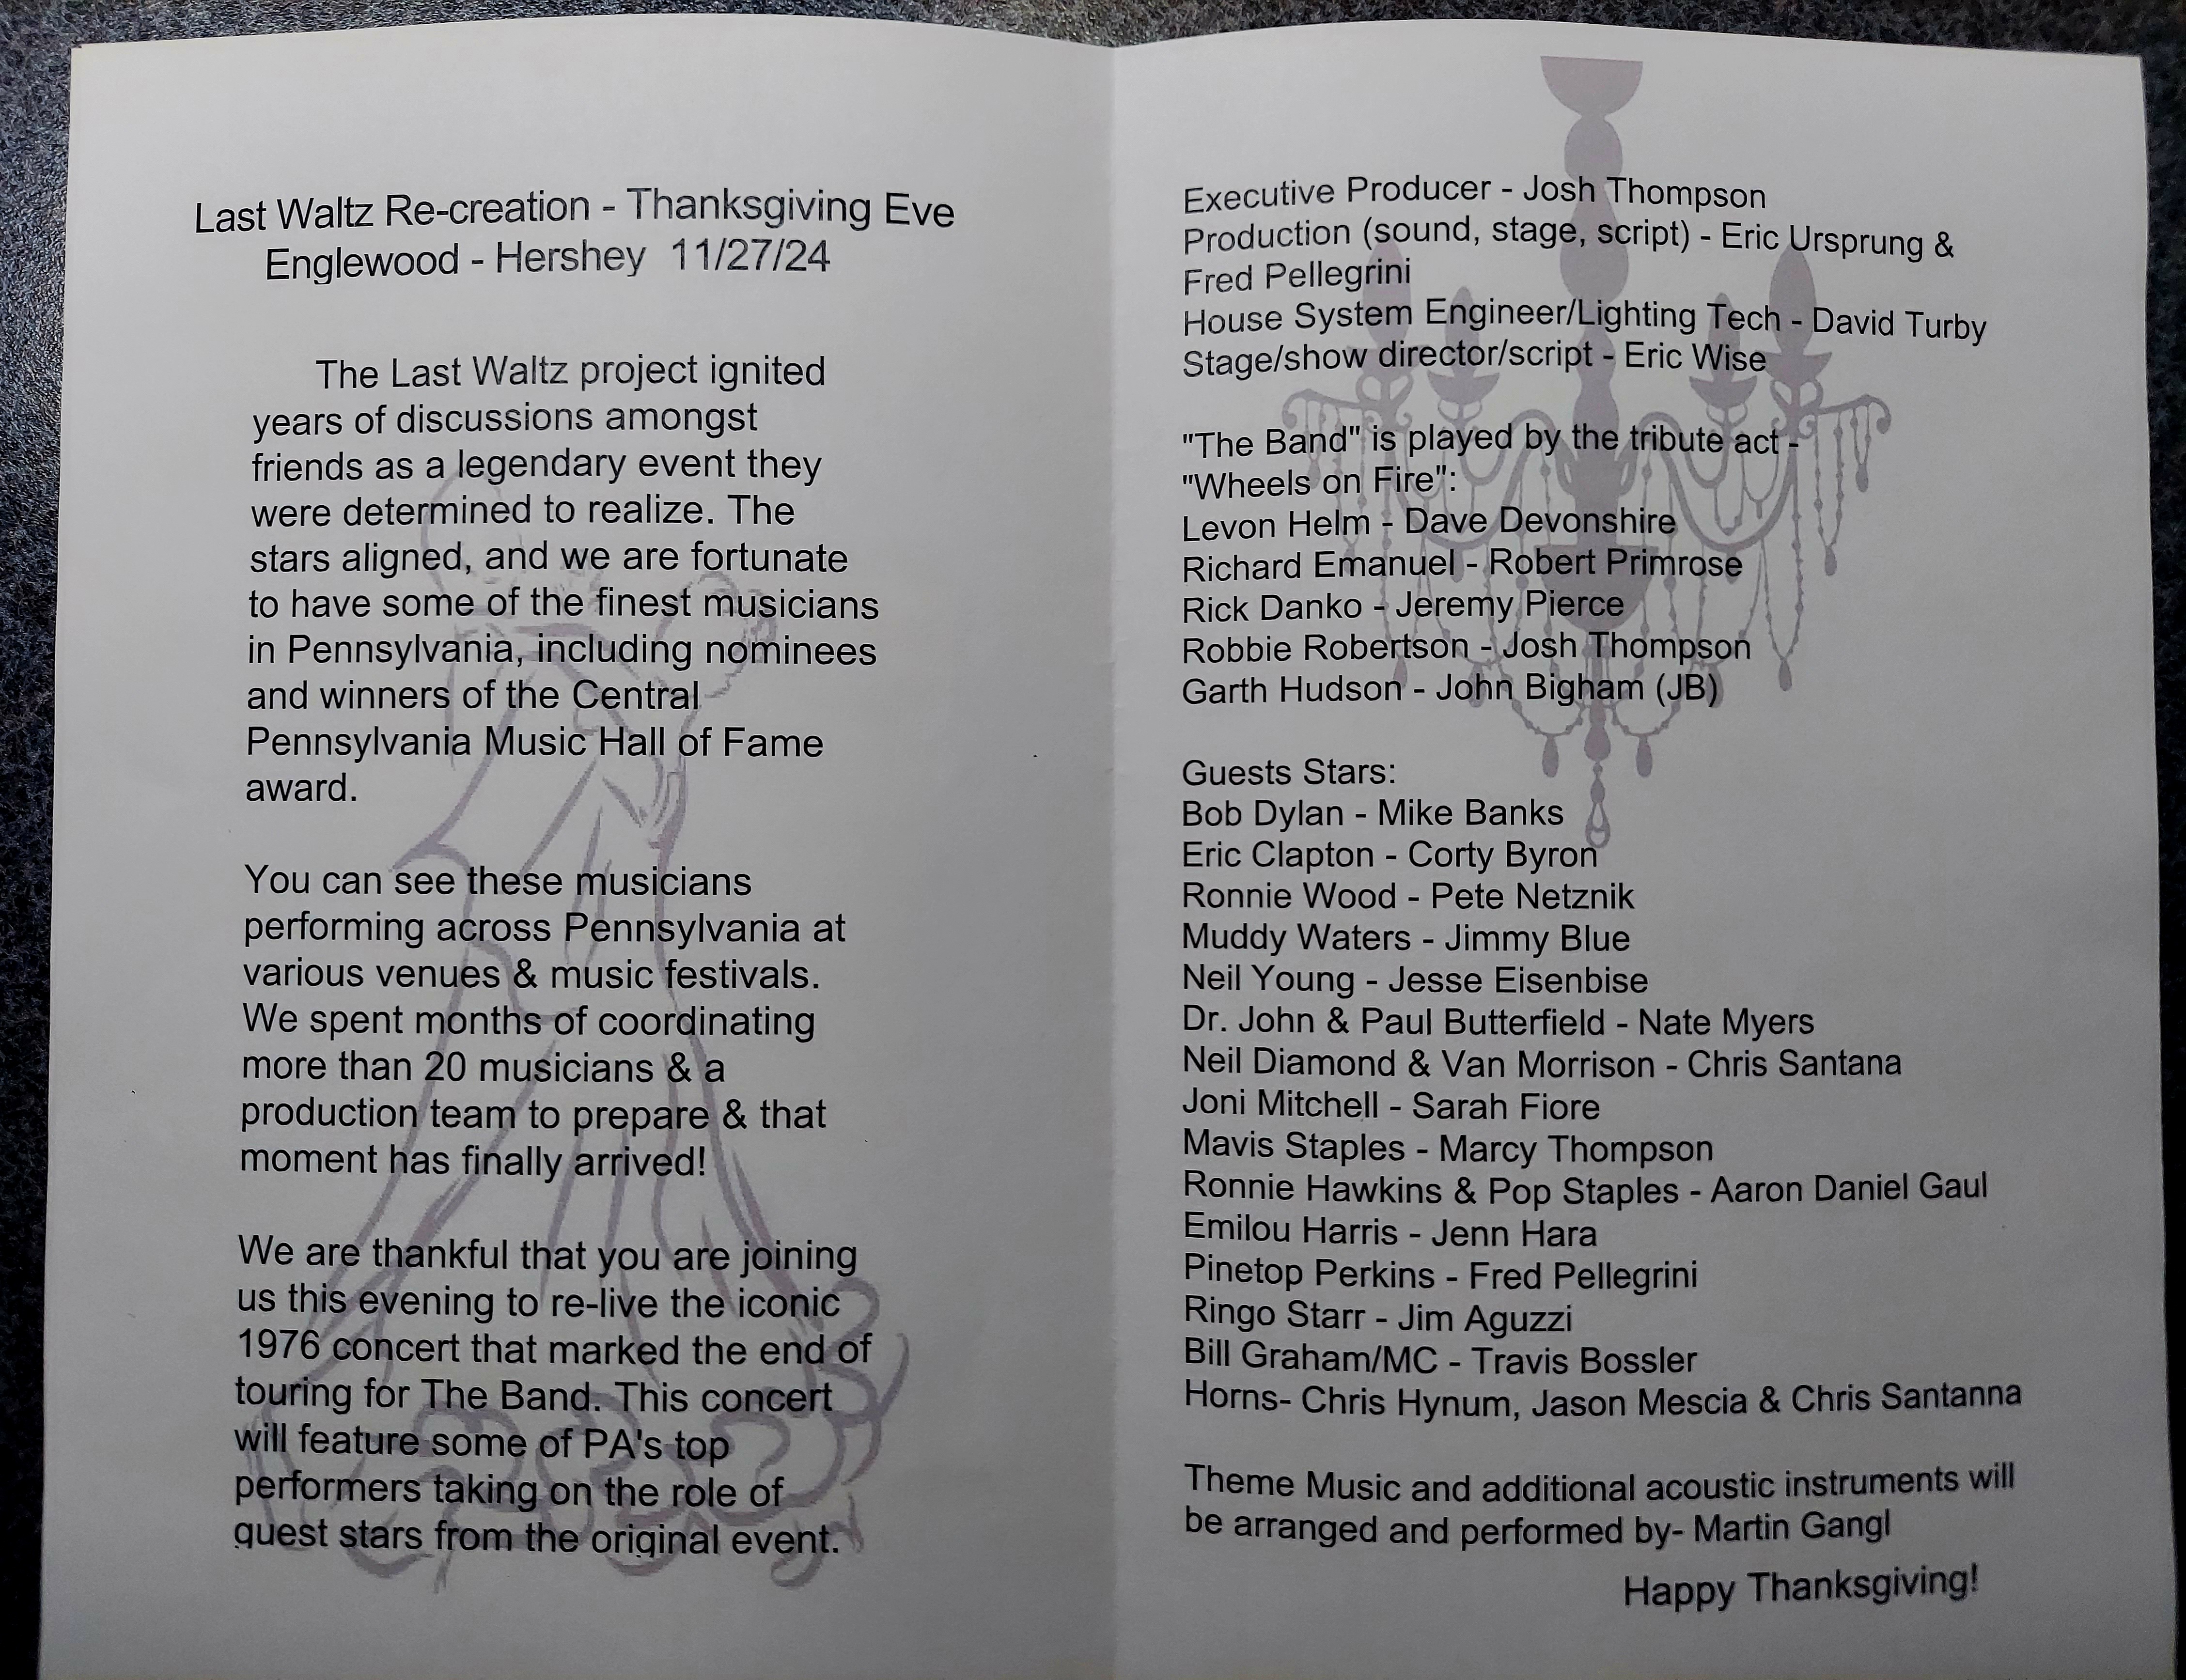 Last Waltz Re-creation - Thanksgiving Eve
Englewood - Hershey 11/27/24
The Last Waltz project ignited
years of discussions amongst
friends as a legendary event they
were determined to realize. The
stars aligned, and we are fortunate
to have some of the finest musicians
in Pennsylvania, including nominees
and winners of the Central
Pennsylvania Music Hall of Fame
award.
You can see these musicians
performing across Pennsylvania at
various venues & music festivals.
We spent months of coordinating
more than 20 musicians & a
production team to prepare & that
moment has finally arrived!
We are thankful that you are joining
us this evening to re-live the iconic
1976 concert that marked the end of
touring for The Band. This concert
will feature some of PA's top
performers taking on the role of
guest stars from the original event.
Executive Producer - Josh Thompson
Production (sound, stage, script) - Eric Ursprung &
Fred Pellegrini
House System Engineer/Lighting Tech - David Turby
Stage/show director/script - Eric Wise
"The Band" is played by the tribute act -
"Wheels on Fire":
Levon Helm - Dave Devonshire
Richard Emanuel - Robert Primrose
Rick Danko - Jeremy Pierce
Robbie Robertson - Josh Thompson
Garth Hudson - John Bigham (JB)
Guests Stars:
Bob Dylan - Mike Banks
Eric Clapton - Corty Byron
Ronnie Wood - Pete Netznik
Muddy Waters - Jimmy Blue
Neil Young - Jesse Eisenbise
Dr. John & Paul Butterfield - Nate Myers
Neil Diamond & Van Morrison - Chris Santana
Joni Mitchell - Sarah Fiore
Mavis Staples - Marcy Thompson
Ronnie Hawkins & Pop Staples - Aaron Daniel Gaul
Emilou Harris - Jenn Hara
Pinetop Perkins - Fred Pellegrini
Ringo Starr - Jim Aguzzi
Bill Graham/MC - Travis Bossler
Horns- Chris Hynum, Jason Mescia & Chris Santanna
Theme Music and additional acoustic instruments will
be arranged and performed by- Martin Gangl
Happy Thanksgiving!